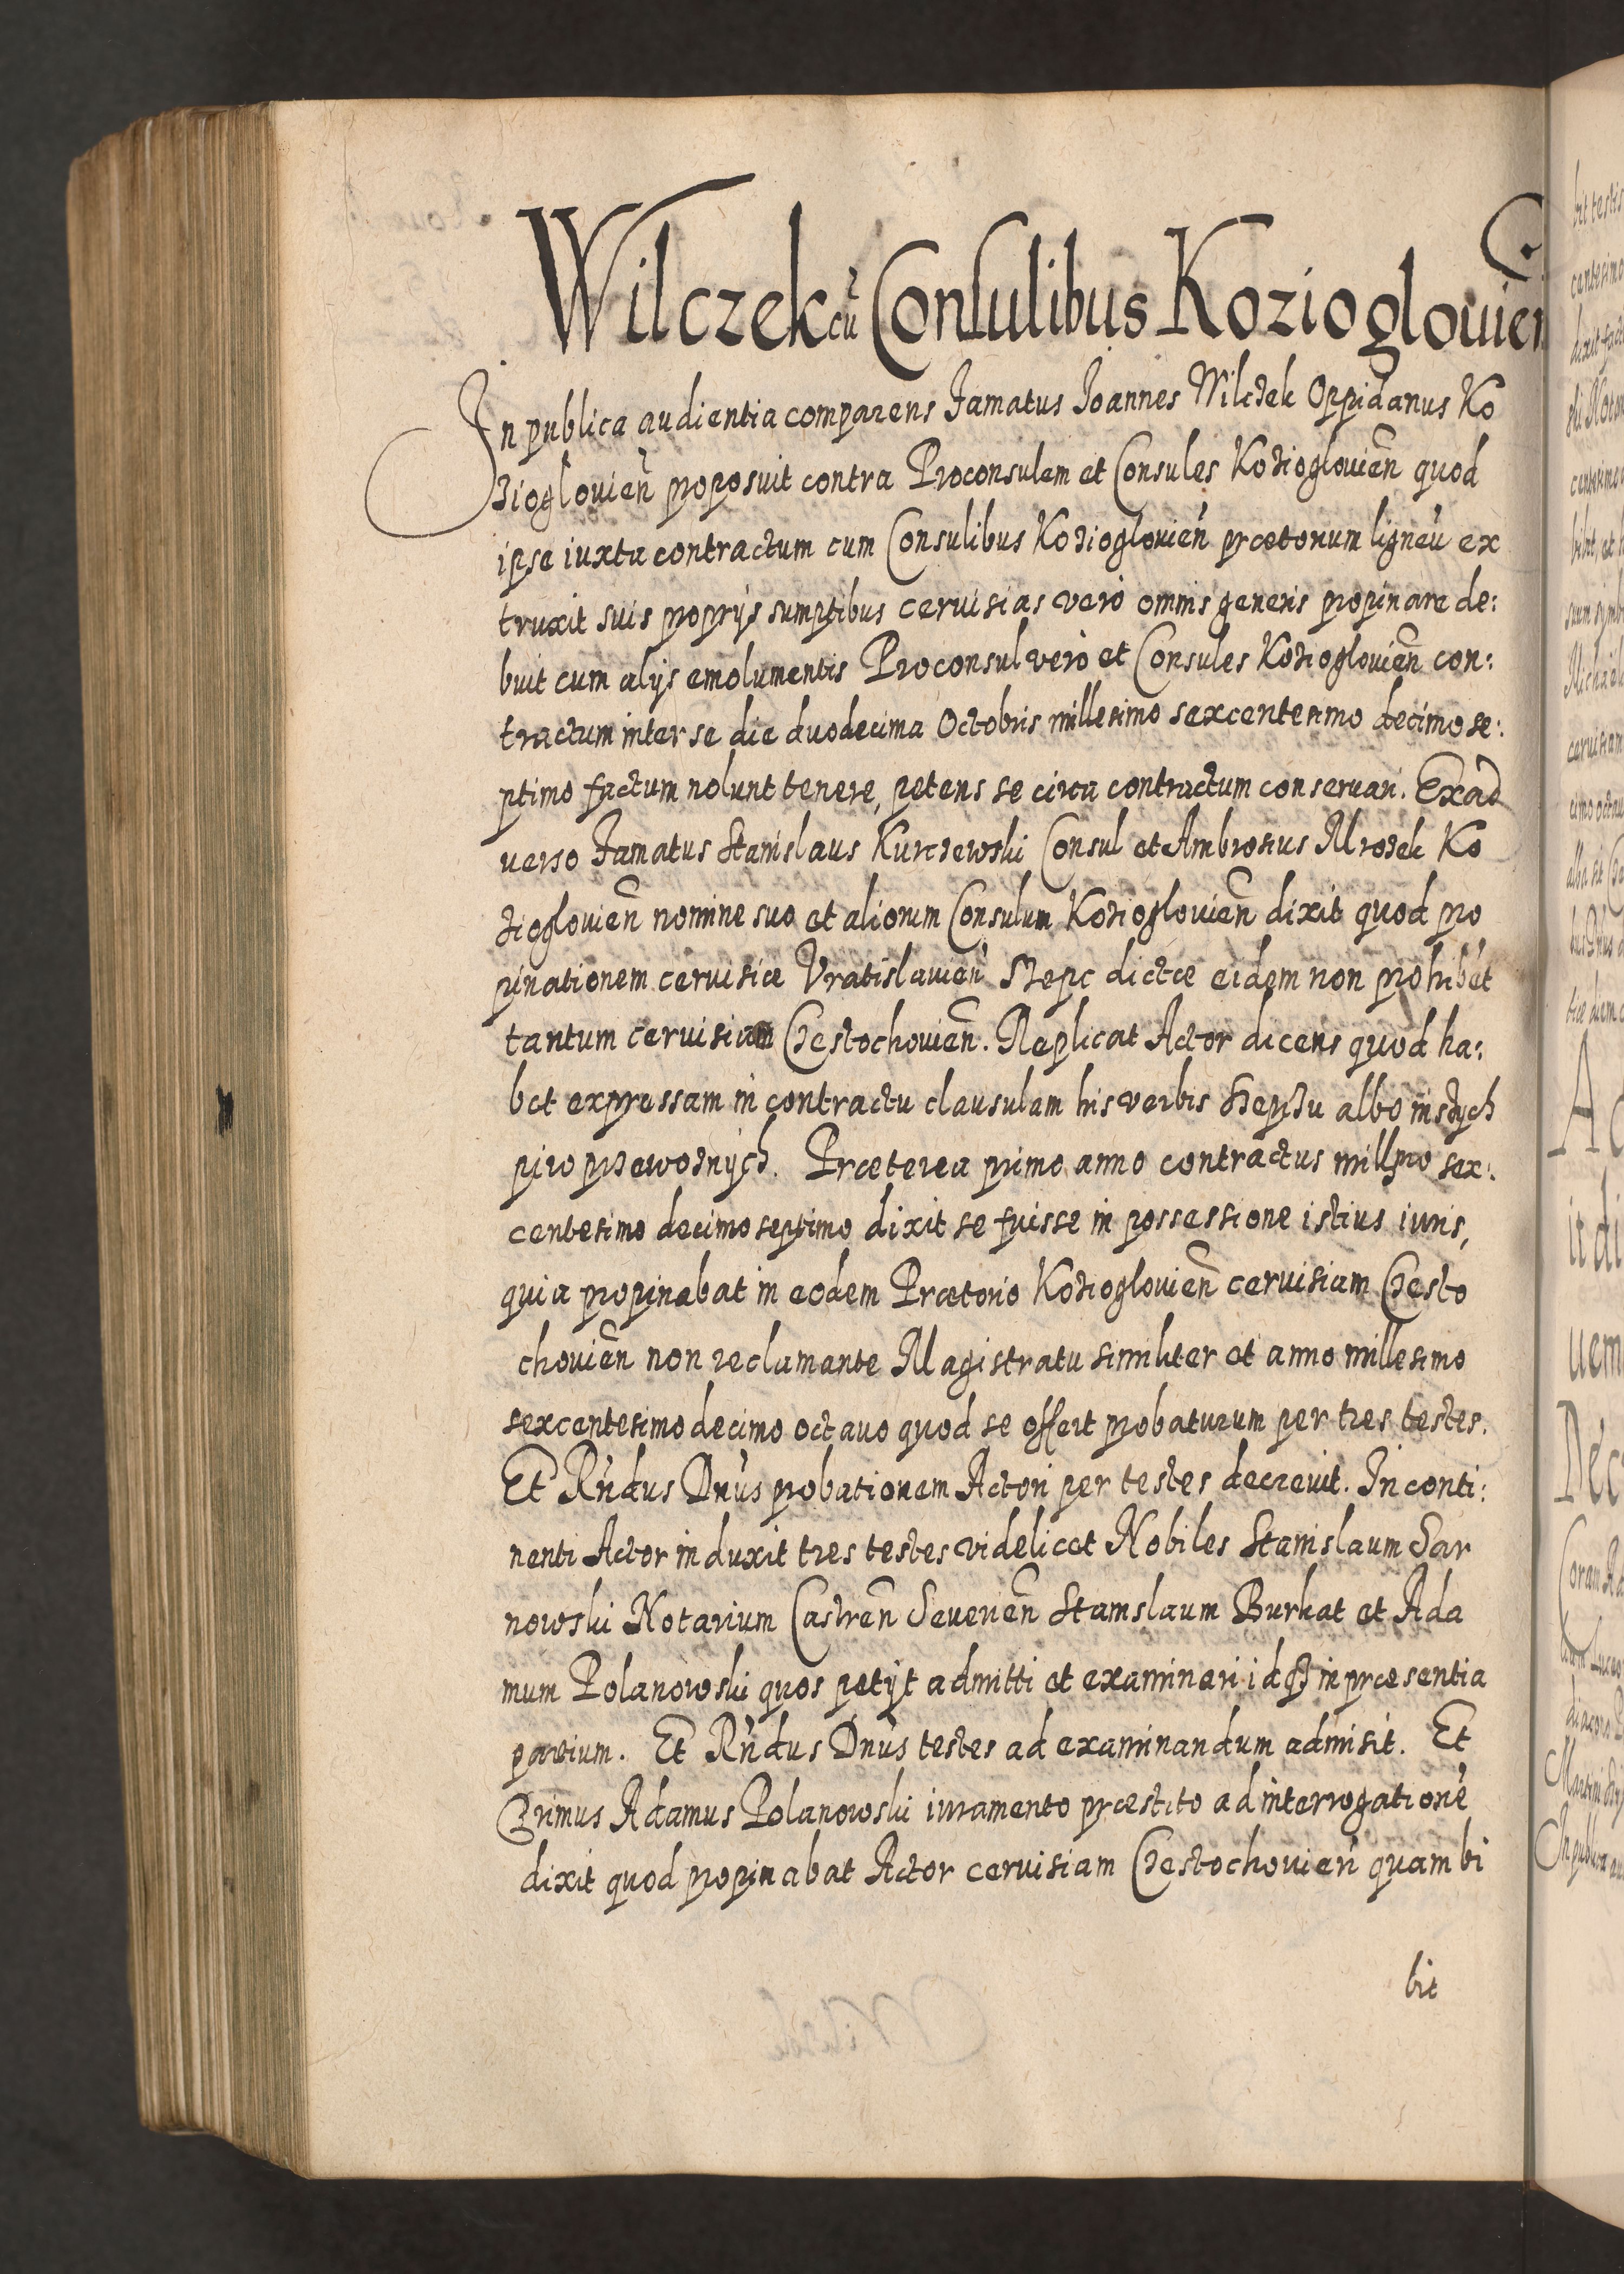 Wilczek cū Consulibus Kozioglouien
In publica audientia comparens Famatus Joannes Wilczek Oppidanus Ko
zioglouien̄ proposuit contra Proconsulem et Consules Kozioglouien̄ quod
ipse iuxta contractum cum Consulibus Kozioglouien̄ prætorium ligneū ex
truxit suis proprÿs sumptibus ceruisias vero omnis generis propinare de:
buit cum alÿs emolumentis Proconsul vero et Consules Kozioglouien̄ con:
tractum inter se die duodecima Octobris millesimo sexcentesimo decimo se:
ptimo factum nolunt tenere, petens se circa contractum conseruari. Ex ad
uerso Famatus Stanislaus Kurczewski Consul et Ambrosius Mrozek Ko
zioglouien̄ nomine suo et aliorum Consulum Kozioglouien̄ dixit quod pro
pinationem ceruisiæ Vratislauien̄ Szepc dictæ eidem non prohibēt
tantum ceruisiam Czestochouien̄. Replicat Actor dicens quod ha:
bet expressam in contractu clausulam his verbis Szepszu albo inszych
piw przewoznÿch. Præterea primo anno contractus millmo sex:
centesimo decimo septimo dixit se fuisse in possessione istius iuris,
quia propinabat in eodem Prætorio Kozioglouien̄ ceruisiam Czesto
chouien̄ non reclamante Magistratu similiter et anno millesimo
sexcentesimo decimo octauo quod se offert probaturum per tres testes.
Et Rn̄dus Dn̄us probationem Actori per testes decreuit. In conti:
nenti Actor induxit tres testes videlicet Nobiles Stanislaum Sar
nowski Notarium Castren̄ Seuerien̄ Stanislaum Burkat et Ada
mum Polanowski quos petÿt admitti et examinari idq3 in præsentia
partium. Et Rn̄dus Dn̄us testes ad examinandum admisit. Et
Primus Adamus Polanowski iuramento præstito ad interrogationē
dixit quod propinabat Actor ceruisiam Czestochouien̄ quam bi
bit